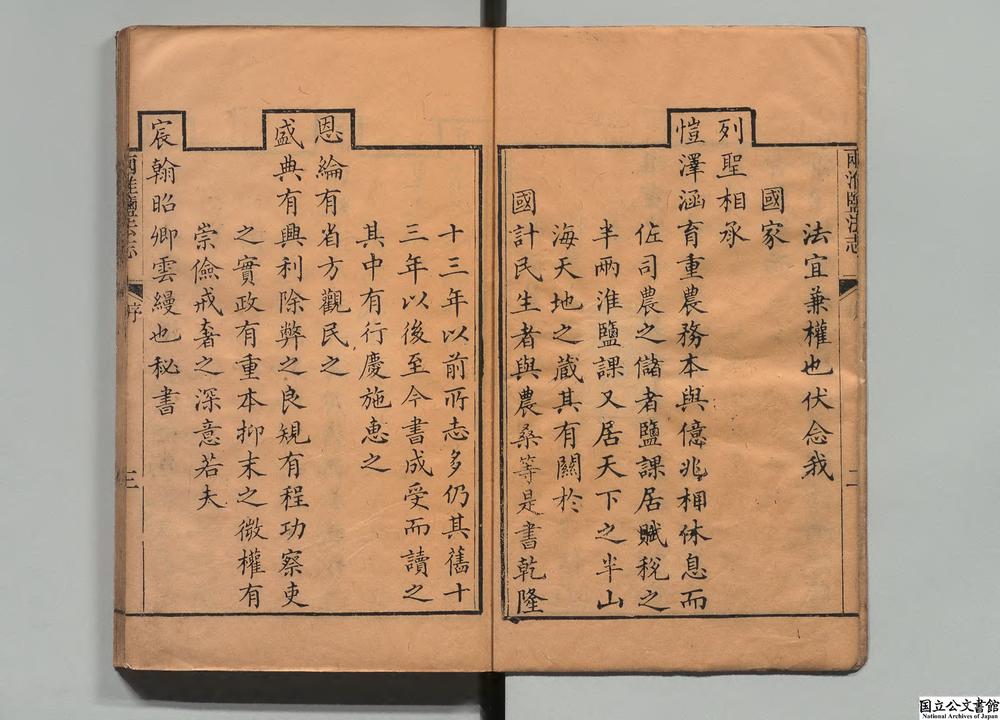 兩淮鹽法志
二
法宜兼權也伏念我
國家
列聖相承
愷澤涵育重農務本與億兆相休息而
佐司農之儲者鹽課居賦稅之
半兩淮鹽課又居天下之半山
海天地之藏其有關於
國計民生者與農桑等是書乾隆
十三年以前所志多仍其舊十
三年以後至今書成受而讀之
其中有行慶施惠之
恩綸有省方觀民之
盛典有興利除弊之良規有程功察吏
之實政有重本抑末之微權有
崇儉戒奢之深意若夫
宸翰昭卿雲縵也秘書
兩淮鹽法志
序
三
国立公文書館
National Archives of Japan